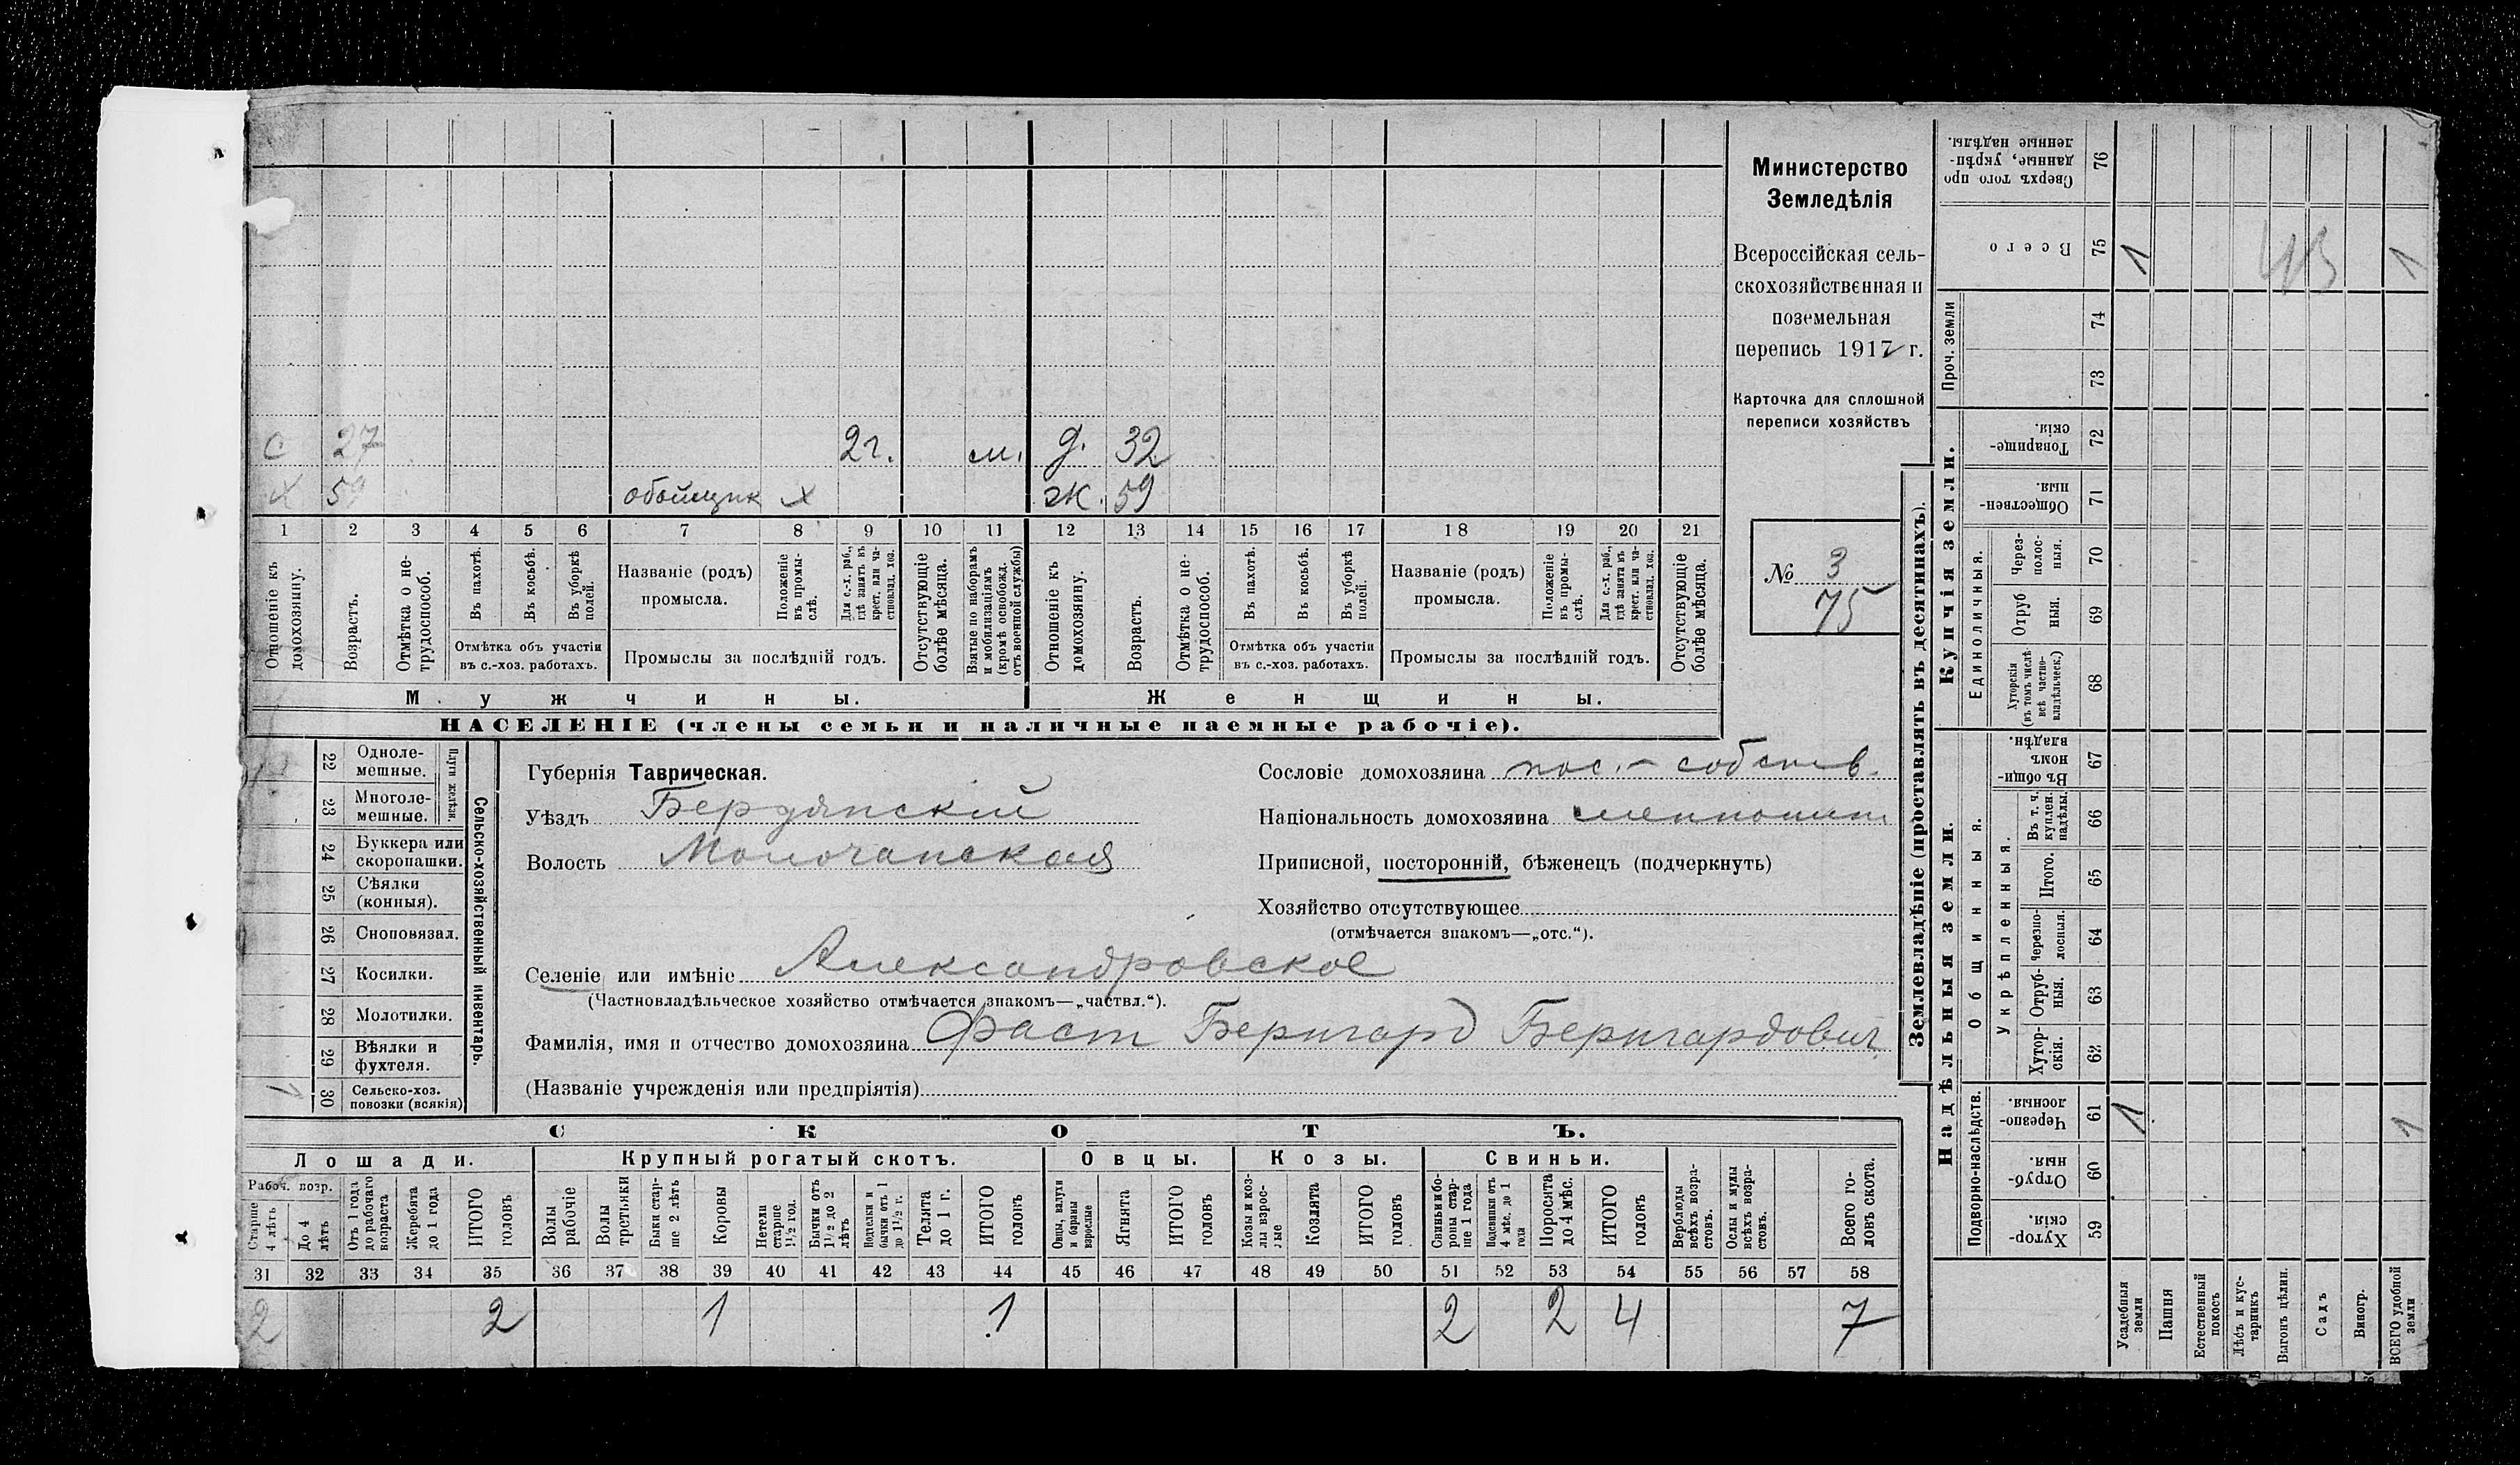 С 27 2г. м. д. 32
Х 59 обойщик х ж. 59
1 2 3 4 5 6 7 8 9 10 11 12 13 14 15 16 17 18 19 20 21
Отношеніе къ домохозяину.
Возрастъ.
Отмѣтка о не-
трудоспособ.
Въ пахотѣ.
Въ косьбѣ.
Въ уборкѣ полей.
Отмѣтка объ участіи
въ с.-хоз. работахъ.
Названіе (родъ)
промысла.
Положеніе
въ промы-
слѣ.
Для с.-х. раб.,
гдѣ занятъ въ
крест. или ча-
стновлад. хоз.
Промыслы за послѣдній годъ.
Отсутствующіе
болѣе мѣсяца.
Взятые по наборамъ
и мобилизаціямъ
(кромѣ освобожд.
отъ военной службы)
Отношеніе къ
домохозяину.
Возрастъ.
Отмѣтка о не-
трудоспособ.
Въ пахотѣ.
Въ косьбѣ.
Въ уборкѣ
полей.
Отмѣтка объ участіи
въ с.-хоз. работахъ.
Названіе (родъ)
промысла.
Положеніе
въ промы-
слѣ.
Для с.-х. раб.,
гдѣ занята въ
крест. или ча-
стновлад. хоз.
Промыслы за послѣдній годъ.
Отсутствующіе
болѣе мѣсяца.
Мужчины. Женщины.
НАСЕЛЕНІЕ (члены семьи и наличные наемные рабочіе).
Министерство
Земледѣлія
Всероссійская сель-
скохозяйственная и
поземельная
перепись 1917 г.
Карточка для сплошной
переписи хозяйствъ
№ 3
75
22 Одноле-
мешные.
23 Многоле-
мешные.
Плуги желѣзн.
24 Буккера или
скоропашки.
25 Сѣялки
(конныя).
26 Сноповязал.
27 Косилки.
28 Молотилки.
29 Вѣялки и
фухтеля.
30 Сельско-хоз.
повозки (всякія)
Сельско-хозяйственный инвентарь.
Губернія Таврическая.
Уѣздъ Бердянскій
Волость Молочанская
Сословіе домохозяина пос.- собств.
Національность домохозяина меннонит
Приписной, посторонній, бѣженецъ (подчеркнуть)
Хозяйство отсутствующее
(отмѣчается знакомъ—„отс.“).
Селеніе или имѣніе Александровское
(Частновладѣльческое хозяйство отмѣчается знакомъ—„частвл.“).
Фамилія, имя и отчество домохозяина Фаст Бернгард Бернгардович
(Названіе учрежденія или предпріятія)
СКОТЪ.
Лошади. Крупный рогатый скотъ. Овцы. Козы. Свиньи.
Рабоч. возр.
Старше
4 лѣтъ
До 4
лѣтъ
Отъ 1 года
до рабочаго
возраста
Жеребята
до 1 года
ИТОГО
головъ
Волы
рабочіе
Волы
третьяки
Быки стар-
ше 2 лѣтъ
Коровы
Нетели
старше
1½ год.
Бычки отъ
1½ до 2
лѣтъ
Подтелки и
бычки отъ 1
до 1½ г.
Телята
до 1 г.
ИТОГО
головъ
Овцы, валухи
и бараны
взрослые
Ягнята
ИТОГО
головъ
Козы и коз-
лы взрос-
лые
Козлята
ИТОГО
головъ
Свиньи и бо-
ровы стар-
ше 1 года
Подсвинки отъ
4 мѣс. до 1
года
Поросята
до 4 мѣс.
ИТОГО
головъ
Верблюды
всѣхъ возра-
стовъ.
Ослы и мулы
всѣхъ возра-
стовъ.
Всего го-
ловъ скота.
31 32 33 34 35 36 37 38 39 40 41 42 43 44 45 46 47 48 49 50 51 52 53 54 55 56 57 58
2 2 1 1 2 2 4 7
Землевладѣніе (проставлять въ десятинахъ).
Надѣльныя земли. Купчія земли.
Проч. земли
Подворно-наслѣдств.
Общинныя.
Укрѣпленныя.
Единоличныя.
Сверхъ того про
данные, укрѣп-
ленные надѣлы.
76
Всего 75 1 1
74
73
Товарище-
скія.
72
Обществен-
ныя.
71
Через-
полос-
ныя.
70
Отруб
ныя.
69
Хуторскія
(въ томъ числѣ
всѣ частно-
владѣльческ.)
68
Въ общи-
номъ
владѣн.
67
Въ т. ч.
куплен.
надѣлы.
66
Итого. 65
Черезпо-
лосныя.
64
Отруб-
ныя.
63
Хутор-
скія.
62
Черезпо-
лосныя.
61 1 1
Отруб-
ныя.
60
Хутор-
скія.
59
Усадебныя
земли
Пашня
Естественный
покосъ
Лѣсъ и кус-
тарникъ
Выгонъ цѣлин.
Садъ
Виногр.
ВСЕГО удобной
земли